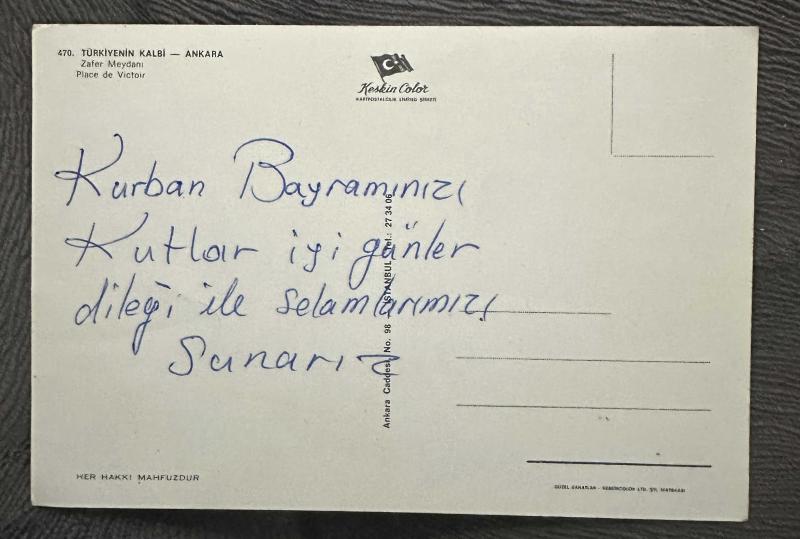 470. TÜRKİYENİN KALBİ — ANKARA
Zafer Meydanı
Place de Victoir
Keskin Color
KARTPOSTALCILIK LİMİTED ŞİRKETİ
Kurban Bayramınızı
Kutlar iyi günler
dileği ile selamlarımızı
Sunarız
Ankara Caddesi No. 98 - İSTANBUL Tel.: 27 34 06
HER HAKKI MAHFUZDUR
GÜZEL SANATLAR - RENKİCOLOR LTD. ŞTİ. MATBAASI